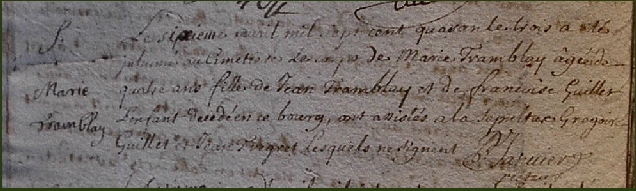 S.
Marie
Tramblay
Le sixieme avril mil sept cent quarante trois a eté
inhumé au Cimetiere Le corps de Marie Tramblay âgée de
quatre ans fille de Jean Tramblay et de francoise Guillet
L'enfant decedé en ce bourg, ont assistés a la Sepulture Gregoire
Guillet et Jean lesquels ne signent